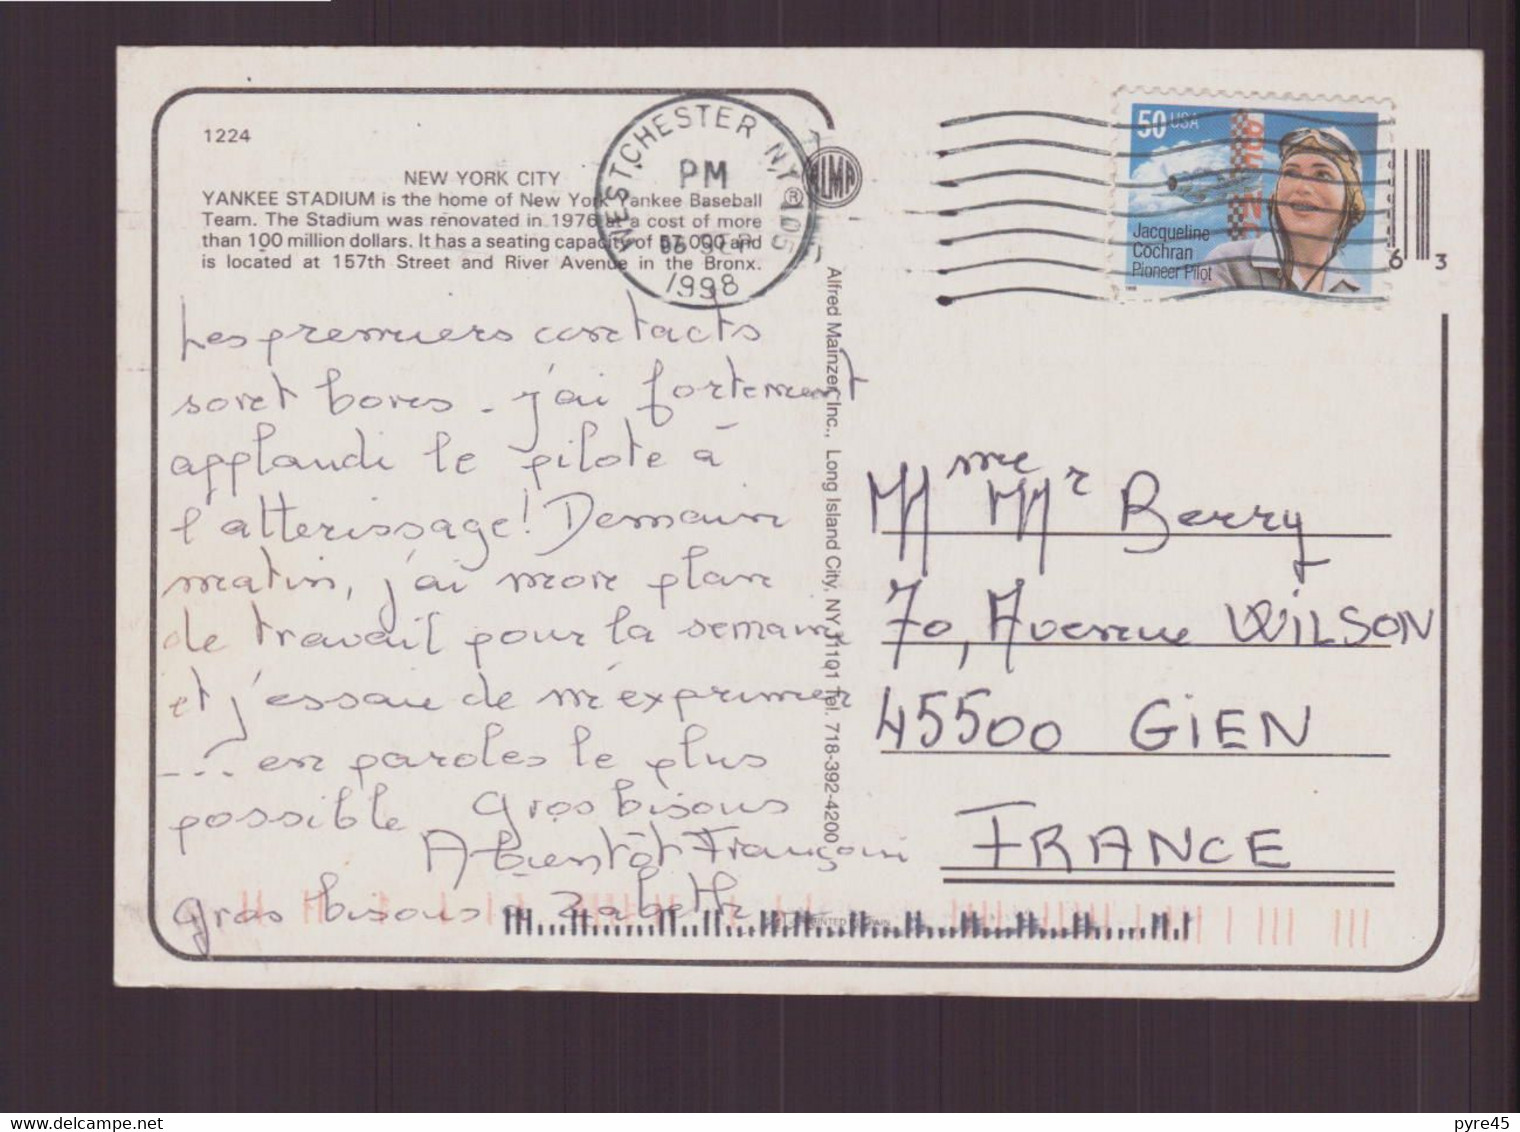 1224
NEW YORK CITY
YANKEE STADIUM is the home of New York Yankee Baseball
Team. The Stadium was renovated in 1976 at a cost of more
than 100 million dollars. It has a seating capacity of 57,000 and
is located at 157th Street and River Avenue in the Bronx.
WESTCHESTER NY 105
PM
SEP
1998
ALMA
®
50 USA
Jacqueline
Cochran
Pioneer Pilot
6 3
Alfred Mainzer, Inc., Long Island City, NY 11101 Tel. 718-392-4200
Les premiers contacts
sont bons. j'ai fortement
applaudi le pilote à
l'atterissage! Demain
matin, j'ai mon plan
de travail pour la semaine
et j'essaie de m'exprimer
... en paroles le plus
possible Gros bisous
A bientôt
gros bisous Zabeth
Mme Mr Berry
70, Avenue WILSON
45500 GIEN
FRANCE
PRINTED
pyre45